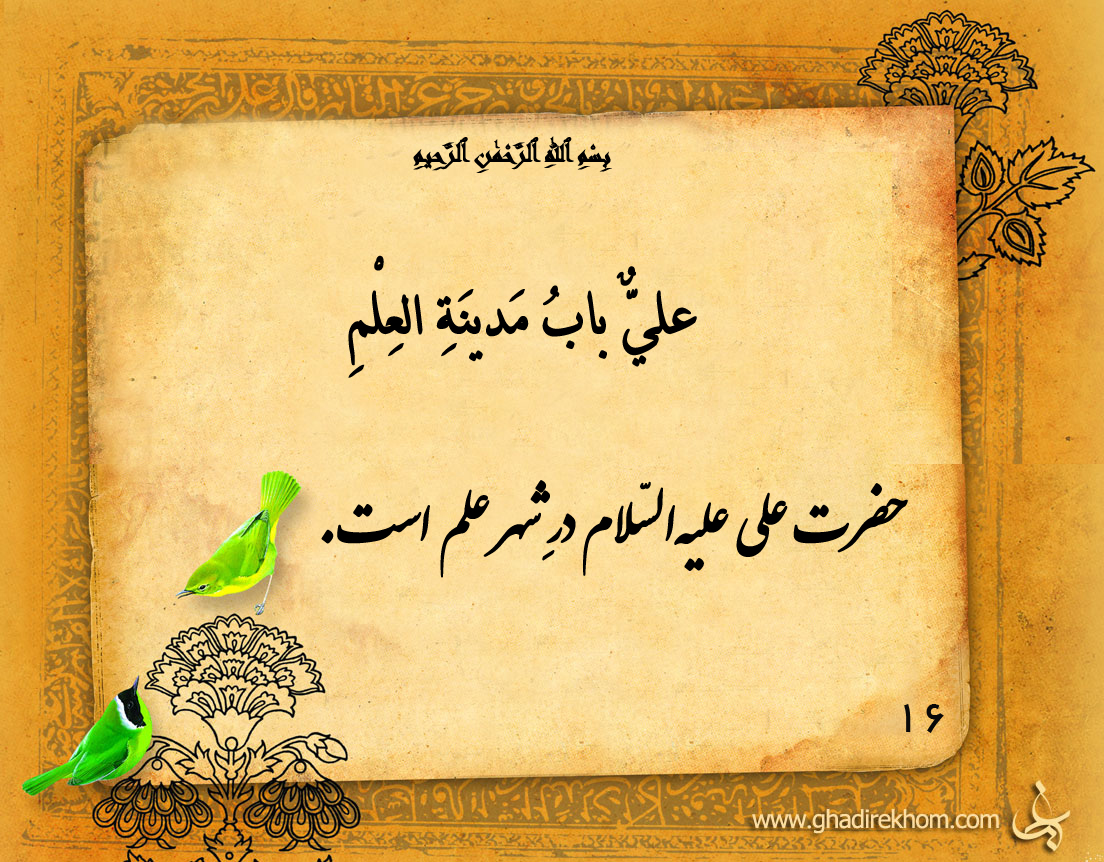 بِسْمِ ٱللَّهِ ٱلرَّحْمَٰنِ ٱلرَّحِيمِ
عليٌّ بابُ مَدينَةِ العِلْمِ
حضرت علی علیه‌السّلام درِ شهر علم است.
۱۶
www.ghadirekhom.com